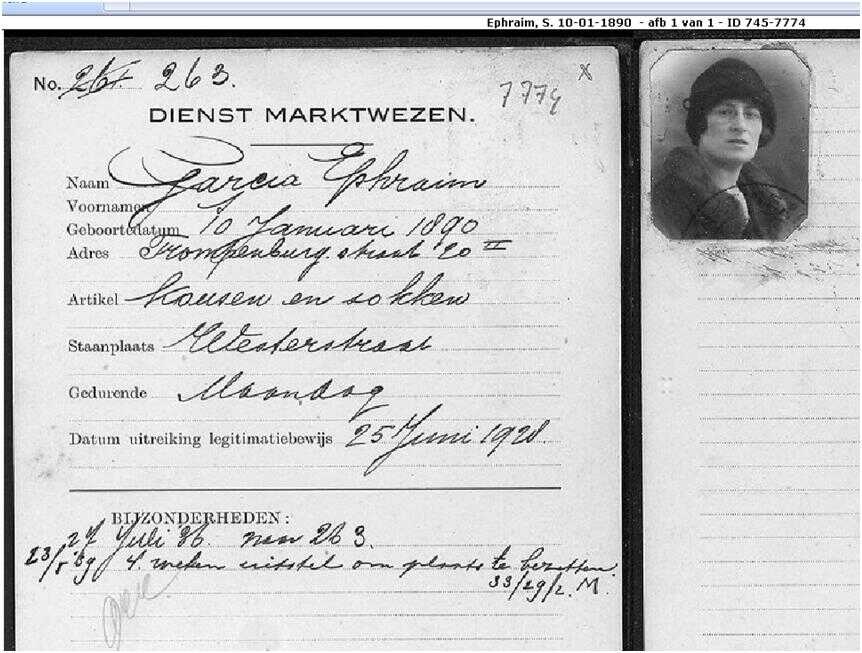 Ephraim, S. 10-01-1890 - afb 1 van 1 - ID 745-7774
No. 263.
7774
X
DIENST MARKTWEZEN.
Naam Garcia Ephraim
Voornamen
Geboortedatum 10 Januari 1890
Adres Trompenburg straat 20 II
Artikel kousen en sokken
Staanplaats Westerstraat
Gedurende Maandag
Datum uitreiking legitimatiebewijs 25 Juni 1928.
BIJZONDERHEDEN:
27 Juli 36. 263.
23/5 '39 4 weken uitstel om plaats te bezetten.
33/29/2. M.